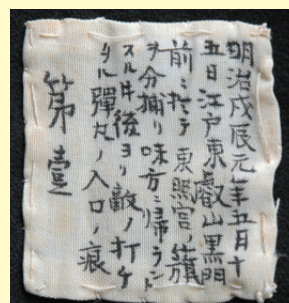 明治戊辰元年五月十
五日江戸東叡山黒門
前ニ於テ東照宮ノ籏
ヲ分捕リ味方ニ帰ラント
スル時後ヨリ敵ノ打ケ
タル彈丸ノ入口ノ痕
第壹